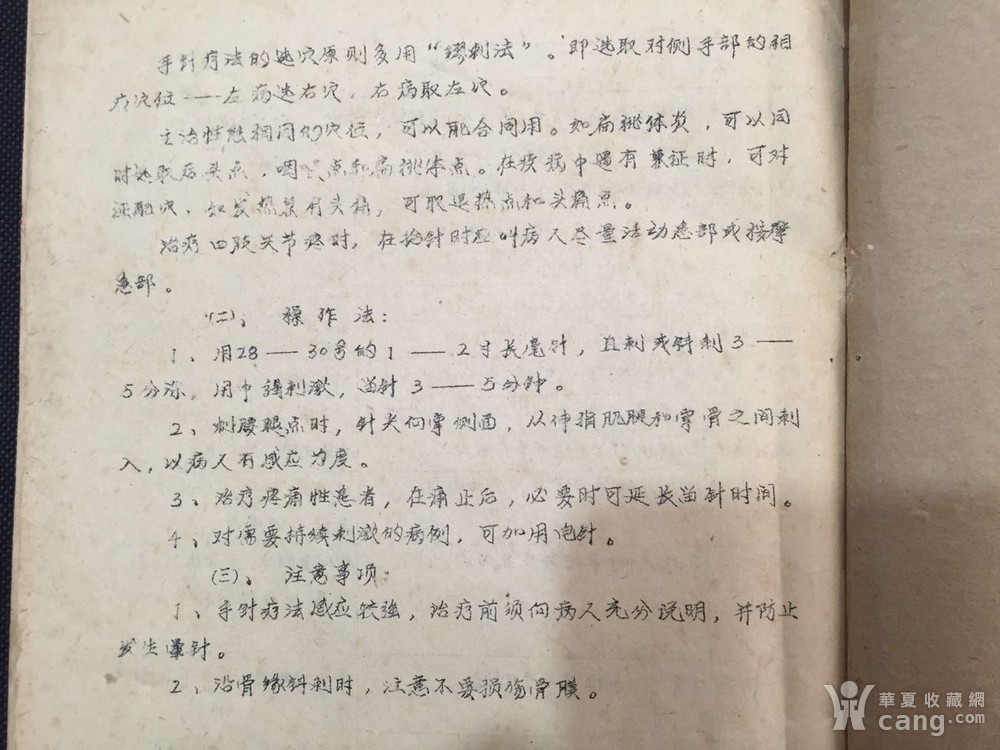 手针疗法的选穴原则多用“缪刺法”。即选取对侧手部的相
应穴位——左病选右穴，右病取左穴。
主治性能相同的穴位，可以配合同用。如扁桃体炎，可以同
时选取后头点，咽喉点和扁桃体点。在疾病中遇有兼证时，可对
证配穴，如发热兼有头痛，可取退热点和头痛点。
治疗四肢关节疼时，在捻针时应叫病人尽量活动患部或按摩
患部。
（二）、操作法：
1、用28——30号的1——2寸长毫针，直刺或斜刺3——
5分深，用中强刺激，留针3——5分钟。
2、刺腰腿点时，针尖向掌侧面，从伸指肌腱和掌骨之间刺
入，以病人有感应为度。
3、治疗疼痛性患者，在痛止后，必要时可延长留针时间。
4、对需要持续刺激的病例，可加用电针。
（三）、注意事项：
1、手针疗法感应较强，治疗前须向病人充分说明，并防止
发生晕针。
2、沿骨缘斜刺时，注意不要损伤骨膜。
華夏收藏網
cang.com